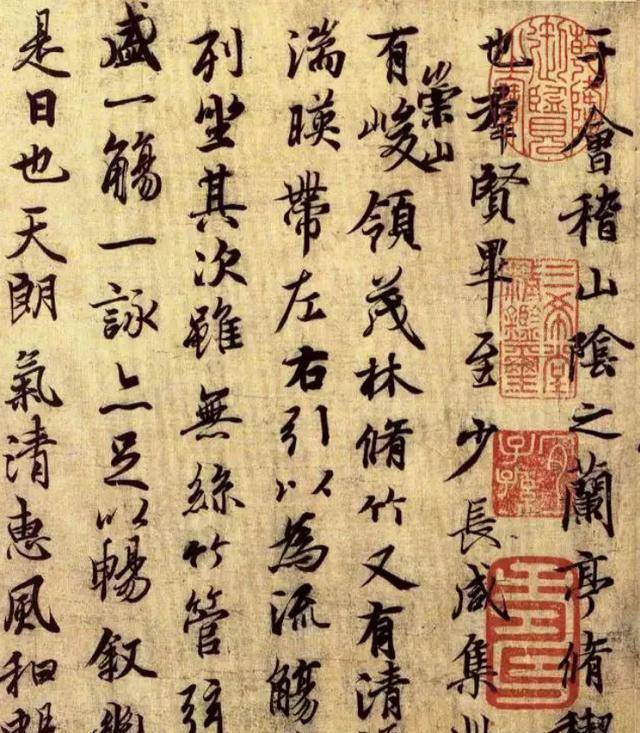 于會稽山陰之蘭亭脩禊
也羣賢畢至少長咸集此
有崇山峻領茂林脩竹又有清
湍暎帶左右引以為流觴
列坐其次雖無絲竹管弦
盛一觴一詠亦足以暢叙幽
是日也天朗氣清惠風和暢
乾隆御覽之寶
三希堂精鑑璽
宜子孫